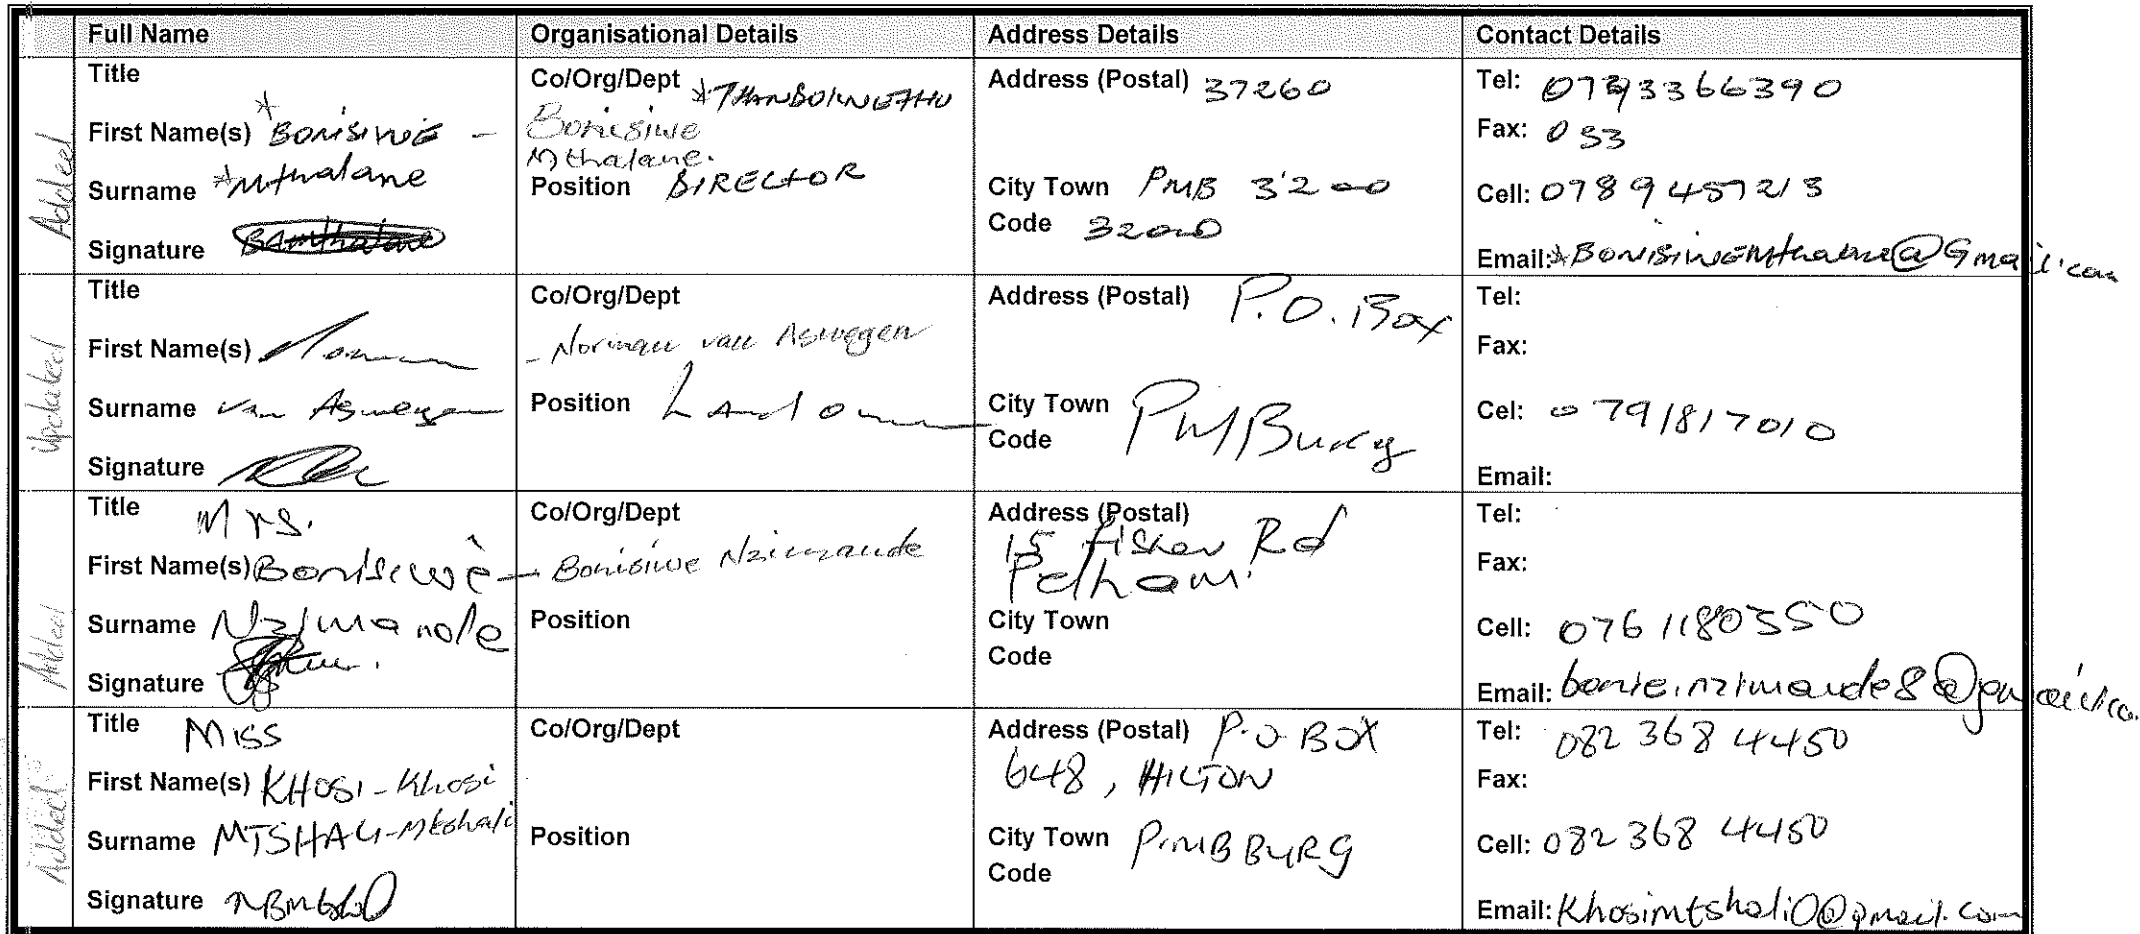 Full Name Organisational Details Address Details Contact Details
Added
Title
First Name(s) *BONISIWE -
Surname *Mthalane
Signature
Co/Org/Dept *THANBOLWETHU
Bonisiwe
Mthalane.
Position DIRECTOR
Address (Postal) 37260
City Town PMB 3200
Code 3200
Tel: 0793366390
Fax: 033
Cell: 0789457213
Email:*BONISIWEMthalane@Gmail.com
Updated
Title
First Name(s) Norman
Surname van Aswegen
Signature
Co/Org/Dept
- Norman van Aswegen
Position Landowner
Address (Postal) P.O. Box
City Town PMBurg
Code
Tel:
Fax:
Cel: 0791817010
Email:
Added
Title Mrs.
First Name(s) Bonisiwe
Surname Nzimande
Signature
Co/Org/Dept
- Bonisiwe Nzimande
Position
Address (Postal)
15 Fisher Rd
Pelham.
City Town
Code
Tel:
Fax:
Cell: 0761180550
Email: bonie.nzimande8@gmail.co.
Added
Title Miss
First Name(s) KHOSI - Khosi
Surname MTSHALI - Mtshali
Signature
Co/Org/Dept
Position
Address (Postal) P.O BOX
648, HILTON
City Town P.MBBURG
Code
Tel: 082 368 4450
Fax:
Cell: 082 368 4450
Email: Khosimtshali0@gmail.com